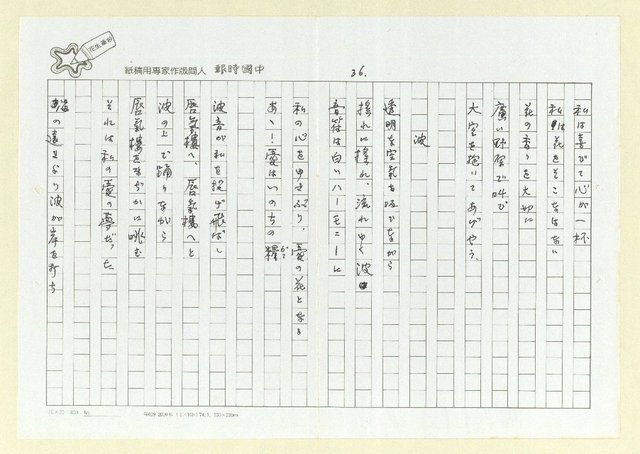 花生專欄
紙稿用專家作版間人 報時國中
36.
私は喜びで心が一杯
私は花をそこなはない
花の香りを大切に
廣い野原で呼び
大空を抱いてあげやう、
波
透明な空気を呼びながら
揺れに揺れ、流れゆく波
音符は白いハーモニーに
私の心をゆさぶり、愛の花となる
あゝ!愛はいのちの糧
かて
波音が私を投げ飛ばし
蜃気樓へ、蜃気樓へと
波の上で踊りながら
蜃気樓をはるかに眺む
それは私の愛の夢だった
海の遠きより波が岸を打ち